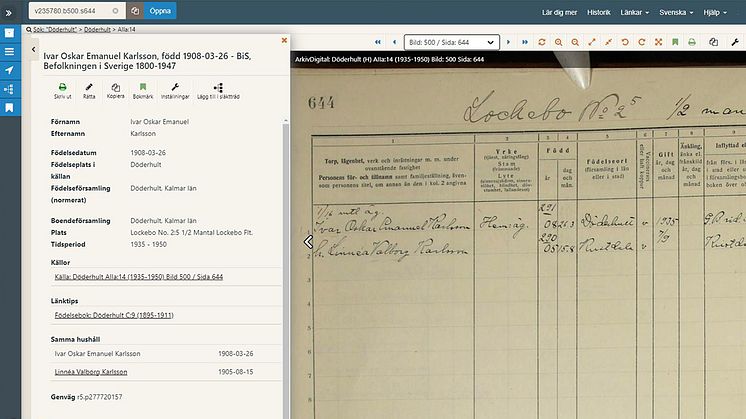 v235780.b500.s644
Öppna
Lär dig mer
Historik
Länkar
Svenska
Hjälp
Sök: "Döderhult" > Döderhult > AIIa:14
Ivar Oskar Emanuel Karlsson, född 1908-03-26 - BiS,
Befolkningen i Sverige 1800-1947
Skriv ut
Rätta
Kopiera
Bokmärk
Inställningar
Lägg till i släktträd
Förnamn Ivar Oskar Emanuel
Efternamn Karlsson
Födelsedatum 1908-03-26
Födelseplats i Döderhult
källan
Födelseförsamling Döderhult, Kalmar län
(normerat)
Boendeförsamling Döderhult, Kalmar län
Plats Lockebo No. 2:5 1/2 Mantal Lockebo Flt.
Tidsperiod 1935 - 1950
Källor
Källa: Döderhult AIIa:14 (1935-1950) Bild 500 / Sida 644
Länktips
Födelsebok: Döderhult C:9 (1895-1911)
Samma hushåll
Ivar Oskar Emanuel Karlsson 1908-03-26
Linnéa Valborg Karlsson 1905-08-15
Genväg r5.p277720157
Bild: 500 / Sida: 644
ArkivDigital: Döderhult (H) AIIa:14 (1935-1950) Bild: 500 Sida: 644
644
Lockebo No 2:5 1/2 man
1 2 3 4 5 6 7 8 9
Torp, lägenhet, verk och inrättningar m. m. under
ovanstående fastighet
Personens för- och tillnamn samt familjeställning, även-
som personens titel, om annan än den i kol. 2 angivna
Yrke
(tjänst, näringsfång)
Stam
(främmande)
Lyte
Född
år
dag
och
mån.
Födelseort
(församling i län
eller i stad)
Gift
år, dag
och
månad
Inflyttad
Ivar Oskar Emanuel Karlsson Hemäg. 08 26.3 Döderhult v 1935
h. Linnéa Valborg Karlsson 05 15.8 v 7/9
1
2
3
4
5
6
7
8